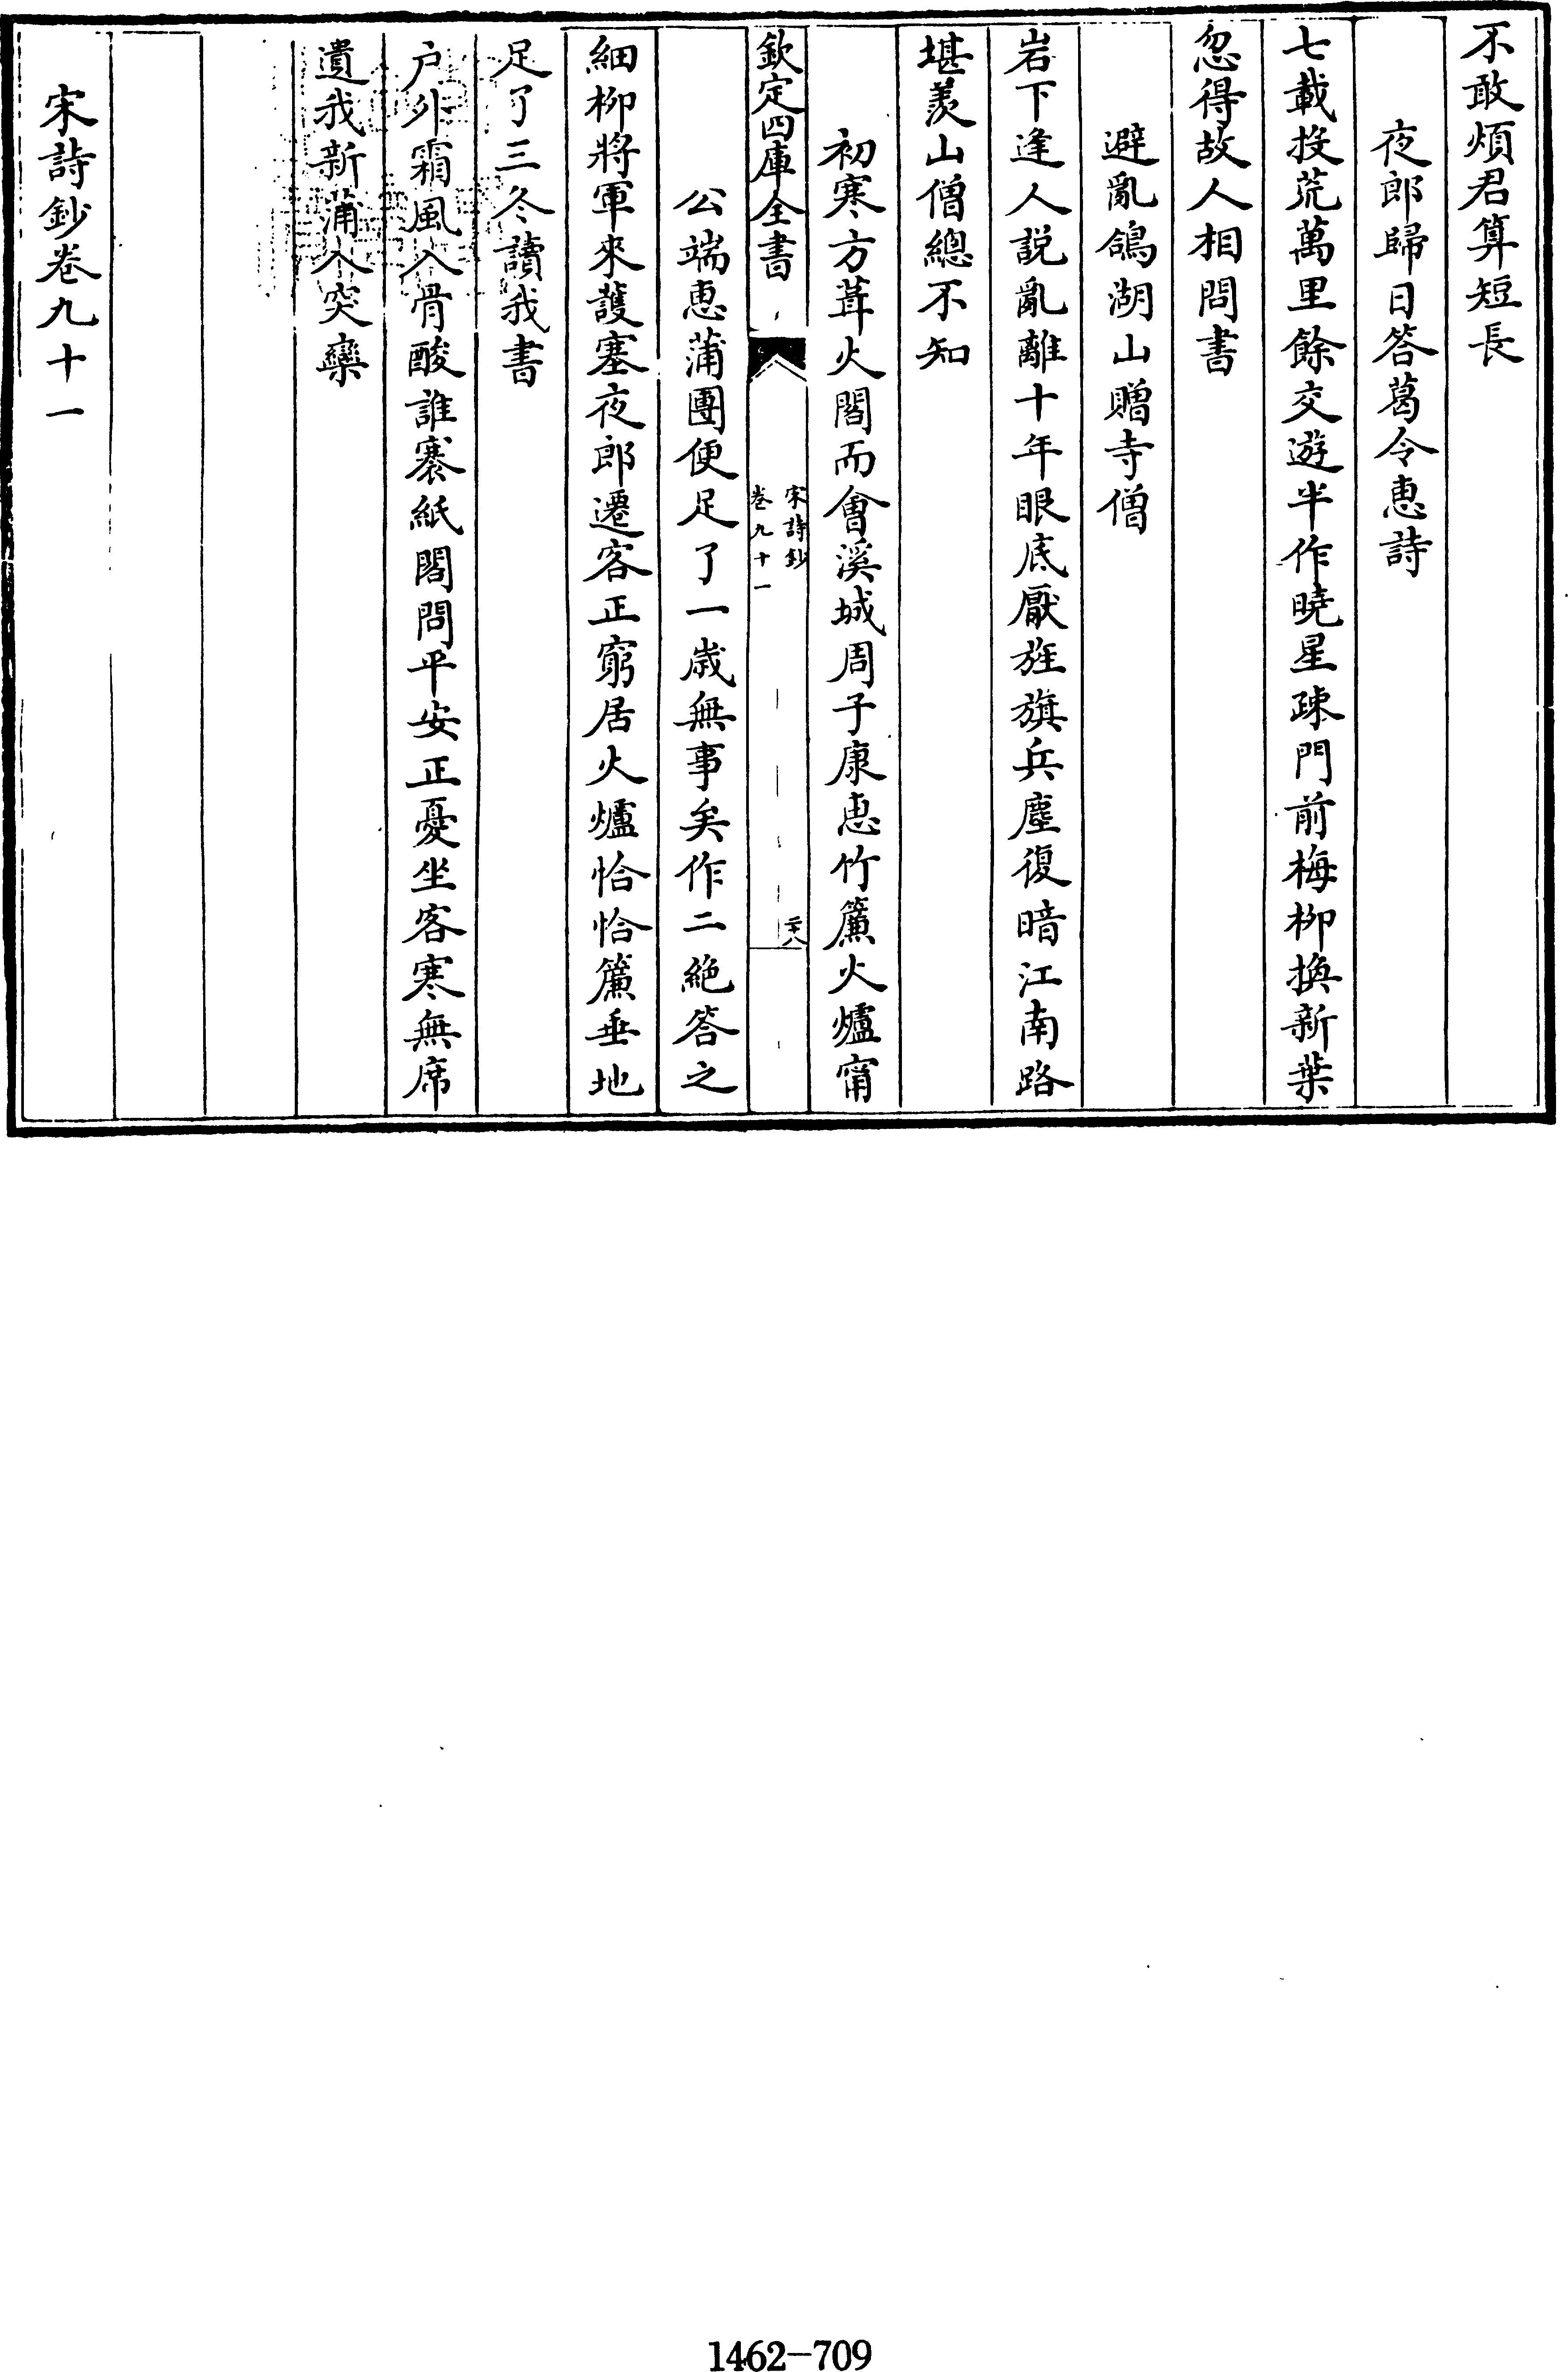 不敢煩君算短長
夜郎歸日答葛令惠詩
七載投荒萬里餘交遊半作曉星疎門前梅柳換新葉
忽得故人相問書
避亂鴿湖山贈寺僧
岩下逢人説亂離十年眼底厭旌旗兵塵復暗江南路
堪羨山僧總不知
初寒方葺火閣而會溪城周子康惠竹簾火爐甯
欽定四庫全書
宋詩鈔
卷九十一
二十八
公端惠蒲團便足了一歲無事矣作二絶答之
細柳將軍來護塞夜郎遷客正窮居火爐恰恰簾垂地
足了三冬讀我書
户外霜風入骨酸誰褰紙閣問平安正憂坐客寒無席
遺我新蒲入突欒
宋詩鈔卷九十一
1462-709